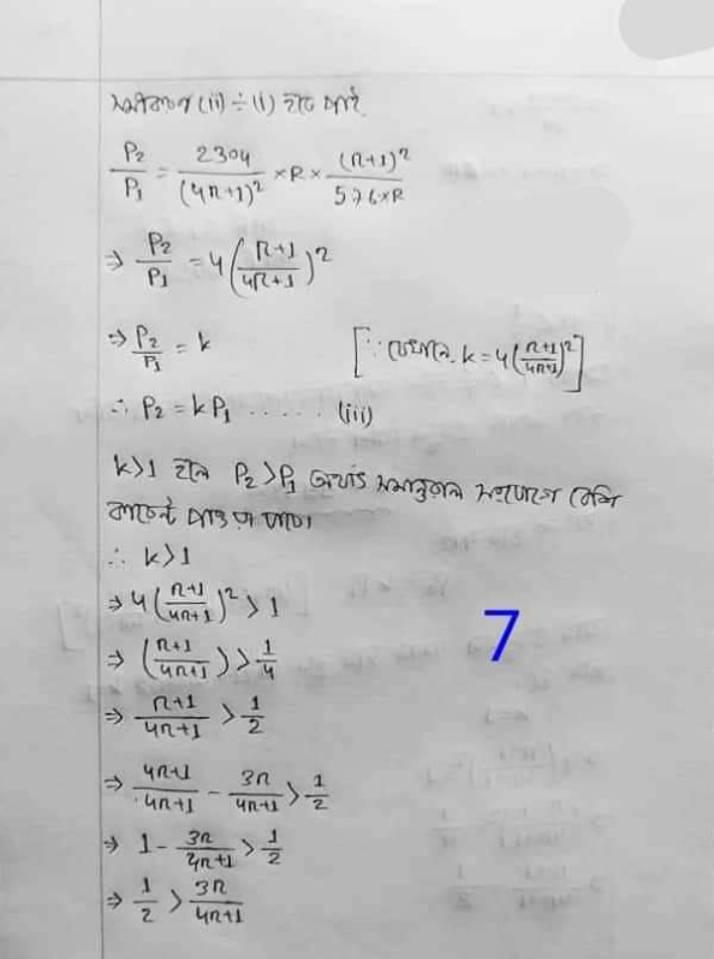 সমীকরণ (ii) ÷ (i) হতে পাই,
P₂/P₁ = 2304/(4R+1)² × R × (R+1)²/576×R
⇒ P₂/P₁ = 4((R+1)/(4R+1))²
⇒ P₂/P₁ = k [∵ যেখানে, k = 4((R+1)/(4R+1))²]
∴ P₂ = kP₁ ...... (iii)
k>1 হলে P₂>P₁ অর্থাৎ সমান্তরাল সংযোগে বেশি
কারেন্ট পাওয়া যাবে।
∴ k>1
⇒ 4((R+1)/(4R+1))² > 1
⇒ ((R+1)/(4R+1)) > 1/4
⇒ (R+1)/(4R+1) > 1/2
⇒ (4R+1)/(4R+1) - 3R/(4R+1) > 1/2
⇒ 1 - 3R/(4R+1) > 1/2
⇒ 1/2 > 3R/(4R+1)
7